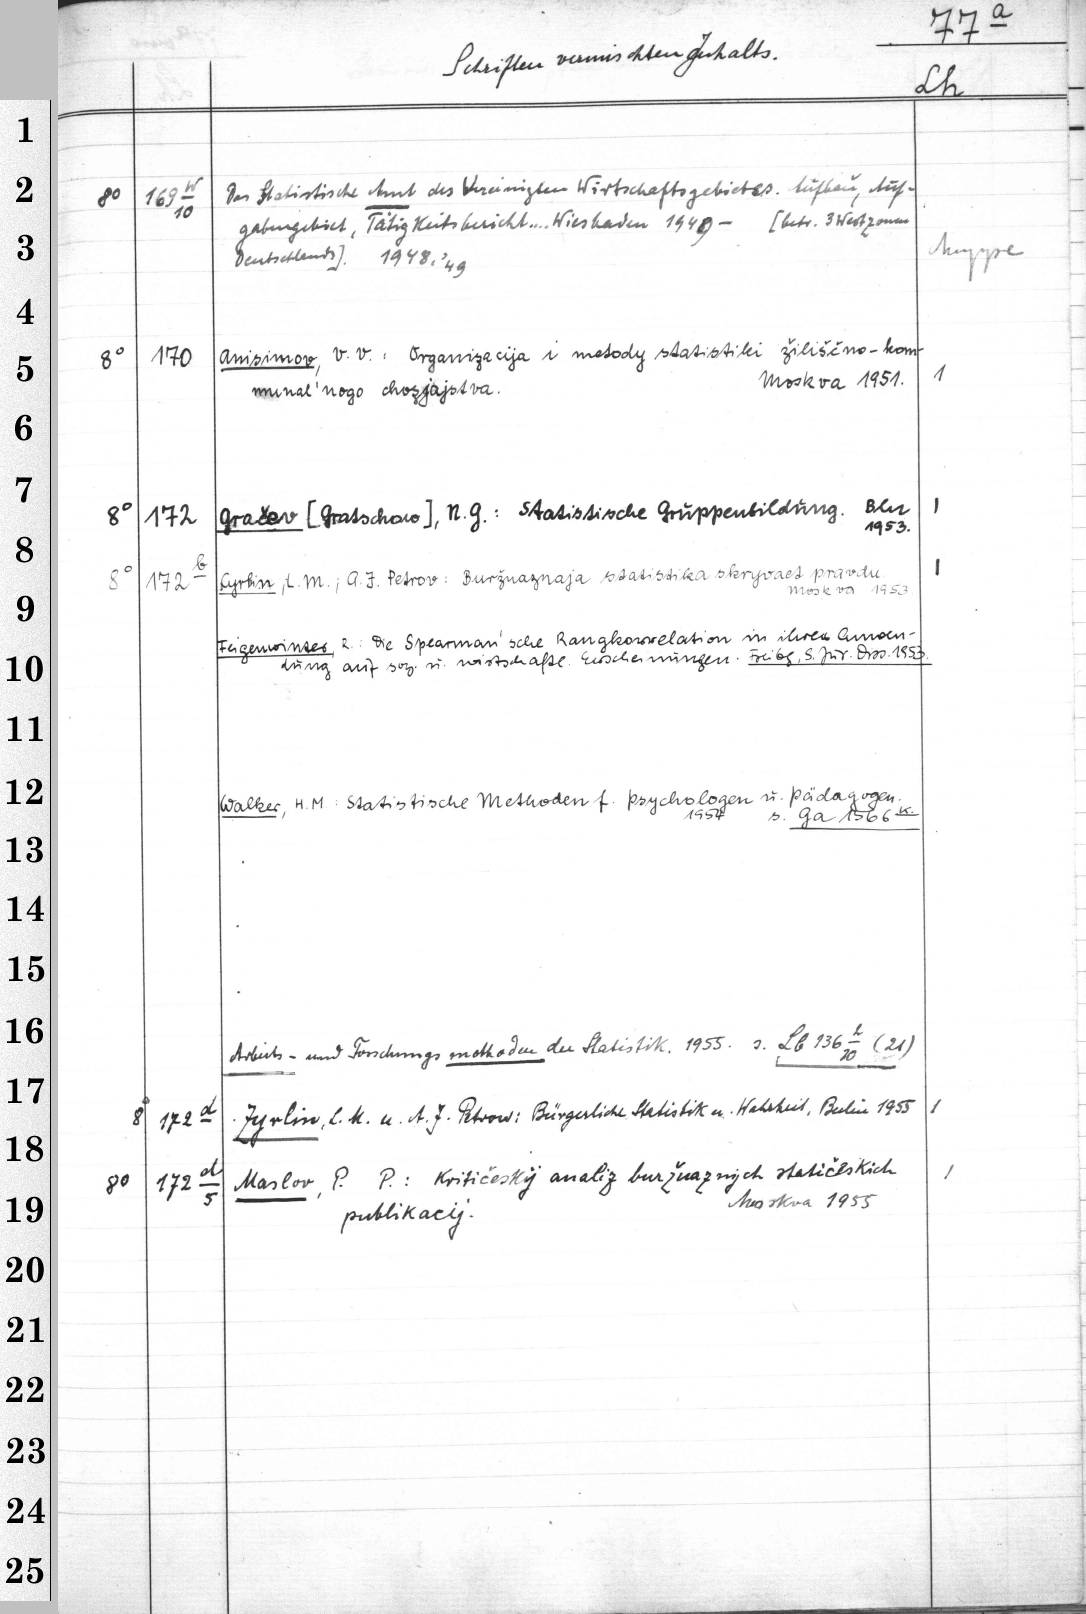 77 a
Schriften vermischten Inhalts.
Lh
1
2
8° 169 w/10 Das Statistische Amt des Vereinigten Wirtschaftsgebietes. Aufbau, Auf-
gabengebiet, Tätigkeitsbericht.... Wiesbaden 1949 - [betr. 3 Westzonen
3
Deutschlands]. 1948, '49
4
8° 170 Anisimov, V. V. : Organizacija i metody statistiki žiliščno-kom-
5
munal'nogo chozjajstva. Moskva 1951. 1
6
7
8° 172 Gračev [Gratschow], N. G. : Statistische Gruppenbildung. Bln 1
1953.
8
8° 172 b Cyrlin, L. M.; A. J. Petrov: Buržuaznaja statistika skryvaet pravdu. 1
Moskva 1953
9
Feigenwinter, R.: Die Spearman'sche Rangkorrelation in ihrer Anwen-
10
dung auf soz. u. wirtschaftl. Erscheinungen. Freibg, S. Jur. Diss. 1953.
11
12
Walker, H. M : Statistische Methoden f. Psychologen u. Pädagogen.
1954 s. Ga 1566 k.
13
14
15
16
Arbeits- und Forschungsmethoden der Statistik. 1955. s. Lb 136 h/20 (21)
17
8° 172 d Zyrlin, L. M. u. A. J. Petrow: Bürgerliche Statistik u. Wahrheit, Berlin 1955 1
18
8° 172 d/5 Maslov, P. P. : Kritičeskij analiz buržuaznych statičeskich 1
19
publikacij. Moskva 1955
20
21
22
23
24
25